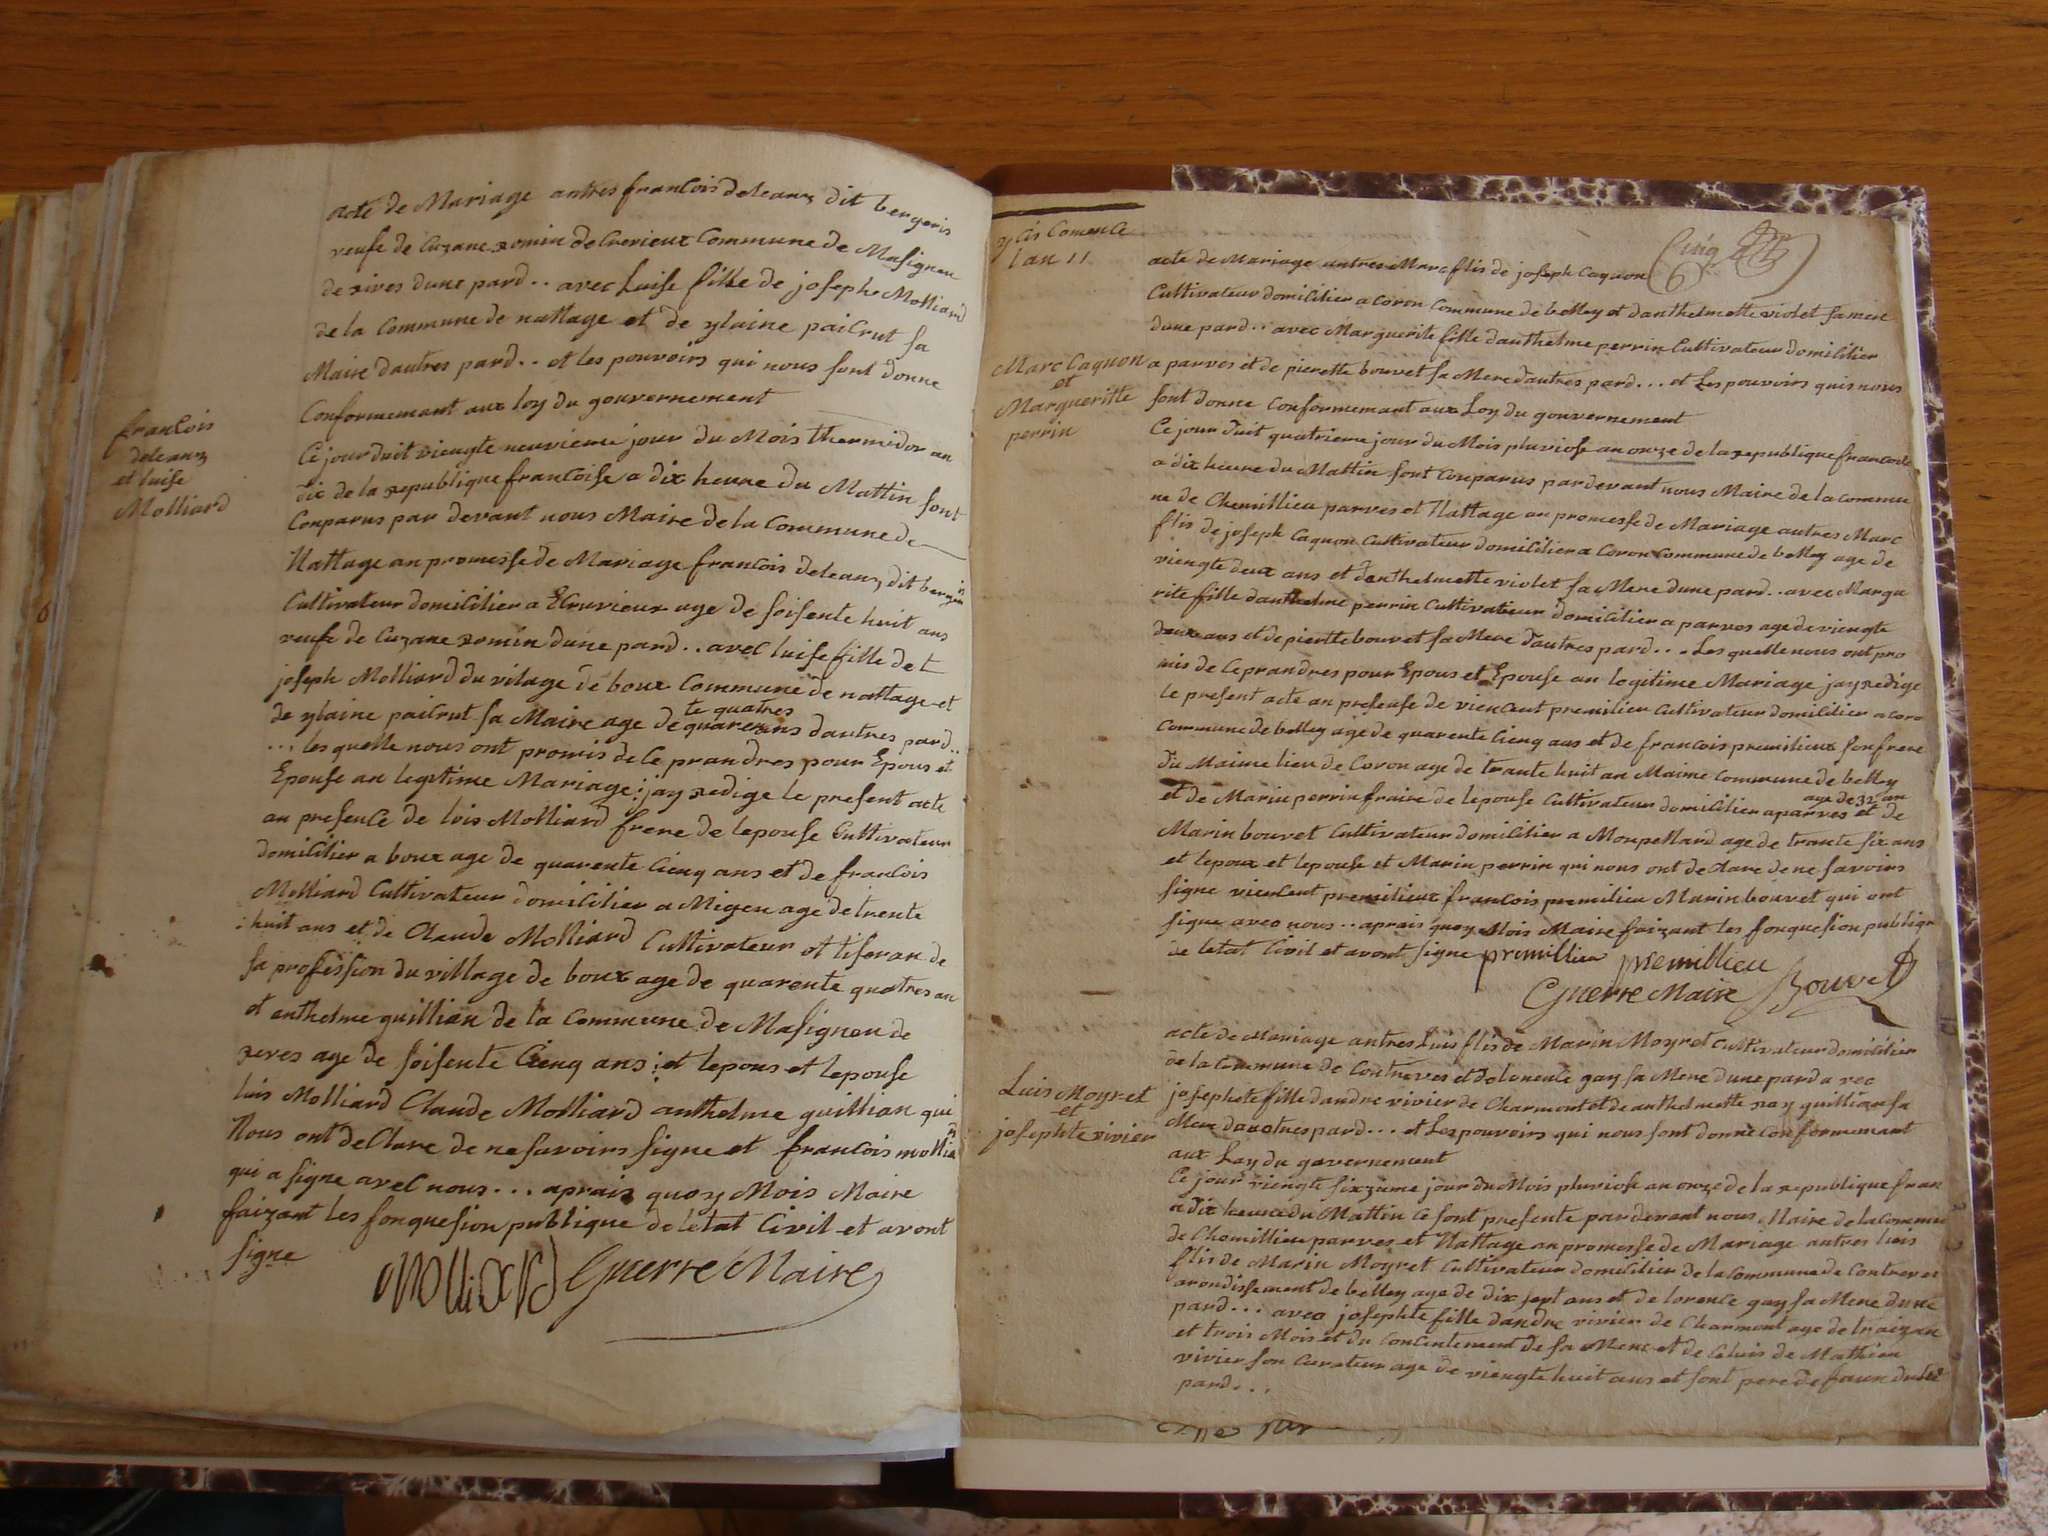 acte de Mariage antres francois deleanz dit bergeris
veufe de Cuzane romin de Crevieux Commune de Masigneu
de rives dune pard.. avec Luise fille de joseph Molliard
de la Commune de nattage et de ylaine pailrut sa
Maire dautres pard.. et les pouvoirs qui nous font donne
Conformemant aux loy du gouvernement
francois
deleanz
et luise
Molliard
Ce jour duit viengte neuvieme jour du Mois thermidor an
dix de la republique francoise a dix heure du Mattin sont
Conparus par devant nous Maire de la Commune de
Nattage an promesse de Mariage francois deleanz dit bergeris
Cultivateur domicilier a Ecruvieux age de soisente huit ans
veufe de Cuzane romin dune pard.. avec luise fille de t
joseph Molliard du vilage de boux Commune de nattage et
te quatres
de ylaine pailrut sa Maire age de quarenans dautres pard..
... les quelle nous ont promis de Ce prandres pour Epous et
Epouse an legitime Mariage: jay redige le present acte
an presence de lois Molliard frere de lepouse Cultivateur
domicilier a boux age de quarente Cienq ans et de francois
Molliard Cultivateur domicilier a Migeu age de trente
huit ans et de Claude Molliard Cultivateur et tiseran de
sa profession du village de boux age de quarente quatres an
et anthelme guillian de la Commune de Masigneu de
reves age de soisente Cienq ans: et lepous et lepouse
luis Molliard Claude Molliard anthelme guillian qui
Nous ont deClare de ne savoirs signe et francois mollia
qui a signe avec nous... aprais quoy Mois Maire
faizant les fonquesion publique de letat Civil et avont
signe
Molliard Guerre Maire
ycis Comence
lan 11
Cinq
6
acte de Mariage antres Marc flis de joseph Caquon
Cultivateur domicilier a Coron Commune de belley et danthelmette violet sa mere
dune pard.. avec Marguerite fille danthelme perrin Cultivateur domicilier
Marc Caquon
et
Margueritte
perrin
a parves et de pierette bouvet sa Mere dautres pard... et Les pouvoirs quis nous
font donne Conformemant aux Loy du gouvernement
Ce jour duit quatrieme jour du Mois pluviose an onze de la republique francoise
a dix heure du Mattin sont Conparus pardevant nous Maire de la Commu
ne de Chemillieu parves et Nattage an promesse de Mariage autres Marc
flis de joseph Caquon Cultivateur domicilier a Coron Commune de belley age de
viengte deux ans et danthelmette violet sa Mere dune pard.. avec Margu
rite fille danthelme perrin Cultivateur domicilier a parves age de viengte
deux ans et de pierette bouvet sa Mere dautres pard... Les quelle nous ont pro
mis de Ce prandres pour Epous et Epouse an legitime Mariage jay redige
le present acte an presense de vienCent premilieu Cultivateur domicilier a coro
Commune de belley age de quarente Cienq ans et de francois premilieux son frere
du Maime lieu de Coron age de trante huit an Maime Commune de belley
age de 32 an
et de Marin perrin fraire de lepouse Cultivateur domicilier a parves et de
Marin bouvet Cultivateur domicilier a Monpellard age de trante six ans
et lepoux et lepouse et Marin perrin qui nous ont declare de ne savoirs
signe vienCent premilieux francois premilieu Marin bouvet qui ont
signe avec nous.. aprais quoy Mois Maire faizant les fonquesion publique
de letat Civil et avont signe premillieu premillieu
Guerre Maire Bouvet
acte de Mariage antres Luis flis de Marin Moyret Cultivateur domicilier
de la Commune de Contreves et de lorence gay sa Mere dune pard avec
Luis Moyret
et
josephte vivier
josephete fille dandre vivier de Charmont et de anthelmette ray guillian sa
Mere dautres pard... et Les pouvoirs qui nous font donne Conformemant
aux Loy du gouvernement
Ce jour viengte sixzieme jour du Mois pluviose an onze de la republique fran
a dix heure du Mattin Ce sont presente par devant nous Maire de la Commu
de Chemillieu parves et Nattage an promesse de Mariage antres luis
flis de Marin Moyret Cultivateur domicilier de la Commune de Contreves
arondissement de belley age de dix sept ans et de lorence gay sa Mere dune
pard... avec josephte fille dandre vivier de Charmont age de traizan
et trois Mois et du Concentement de sa Mere et de Celuis de Mathieu
vivier son Curateur age de viengte huit ans et sont pere de
pard...